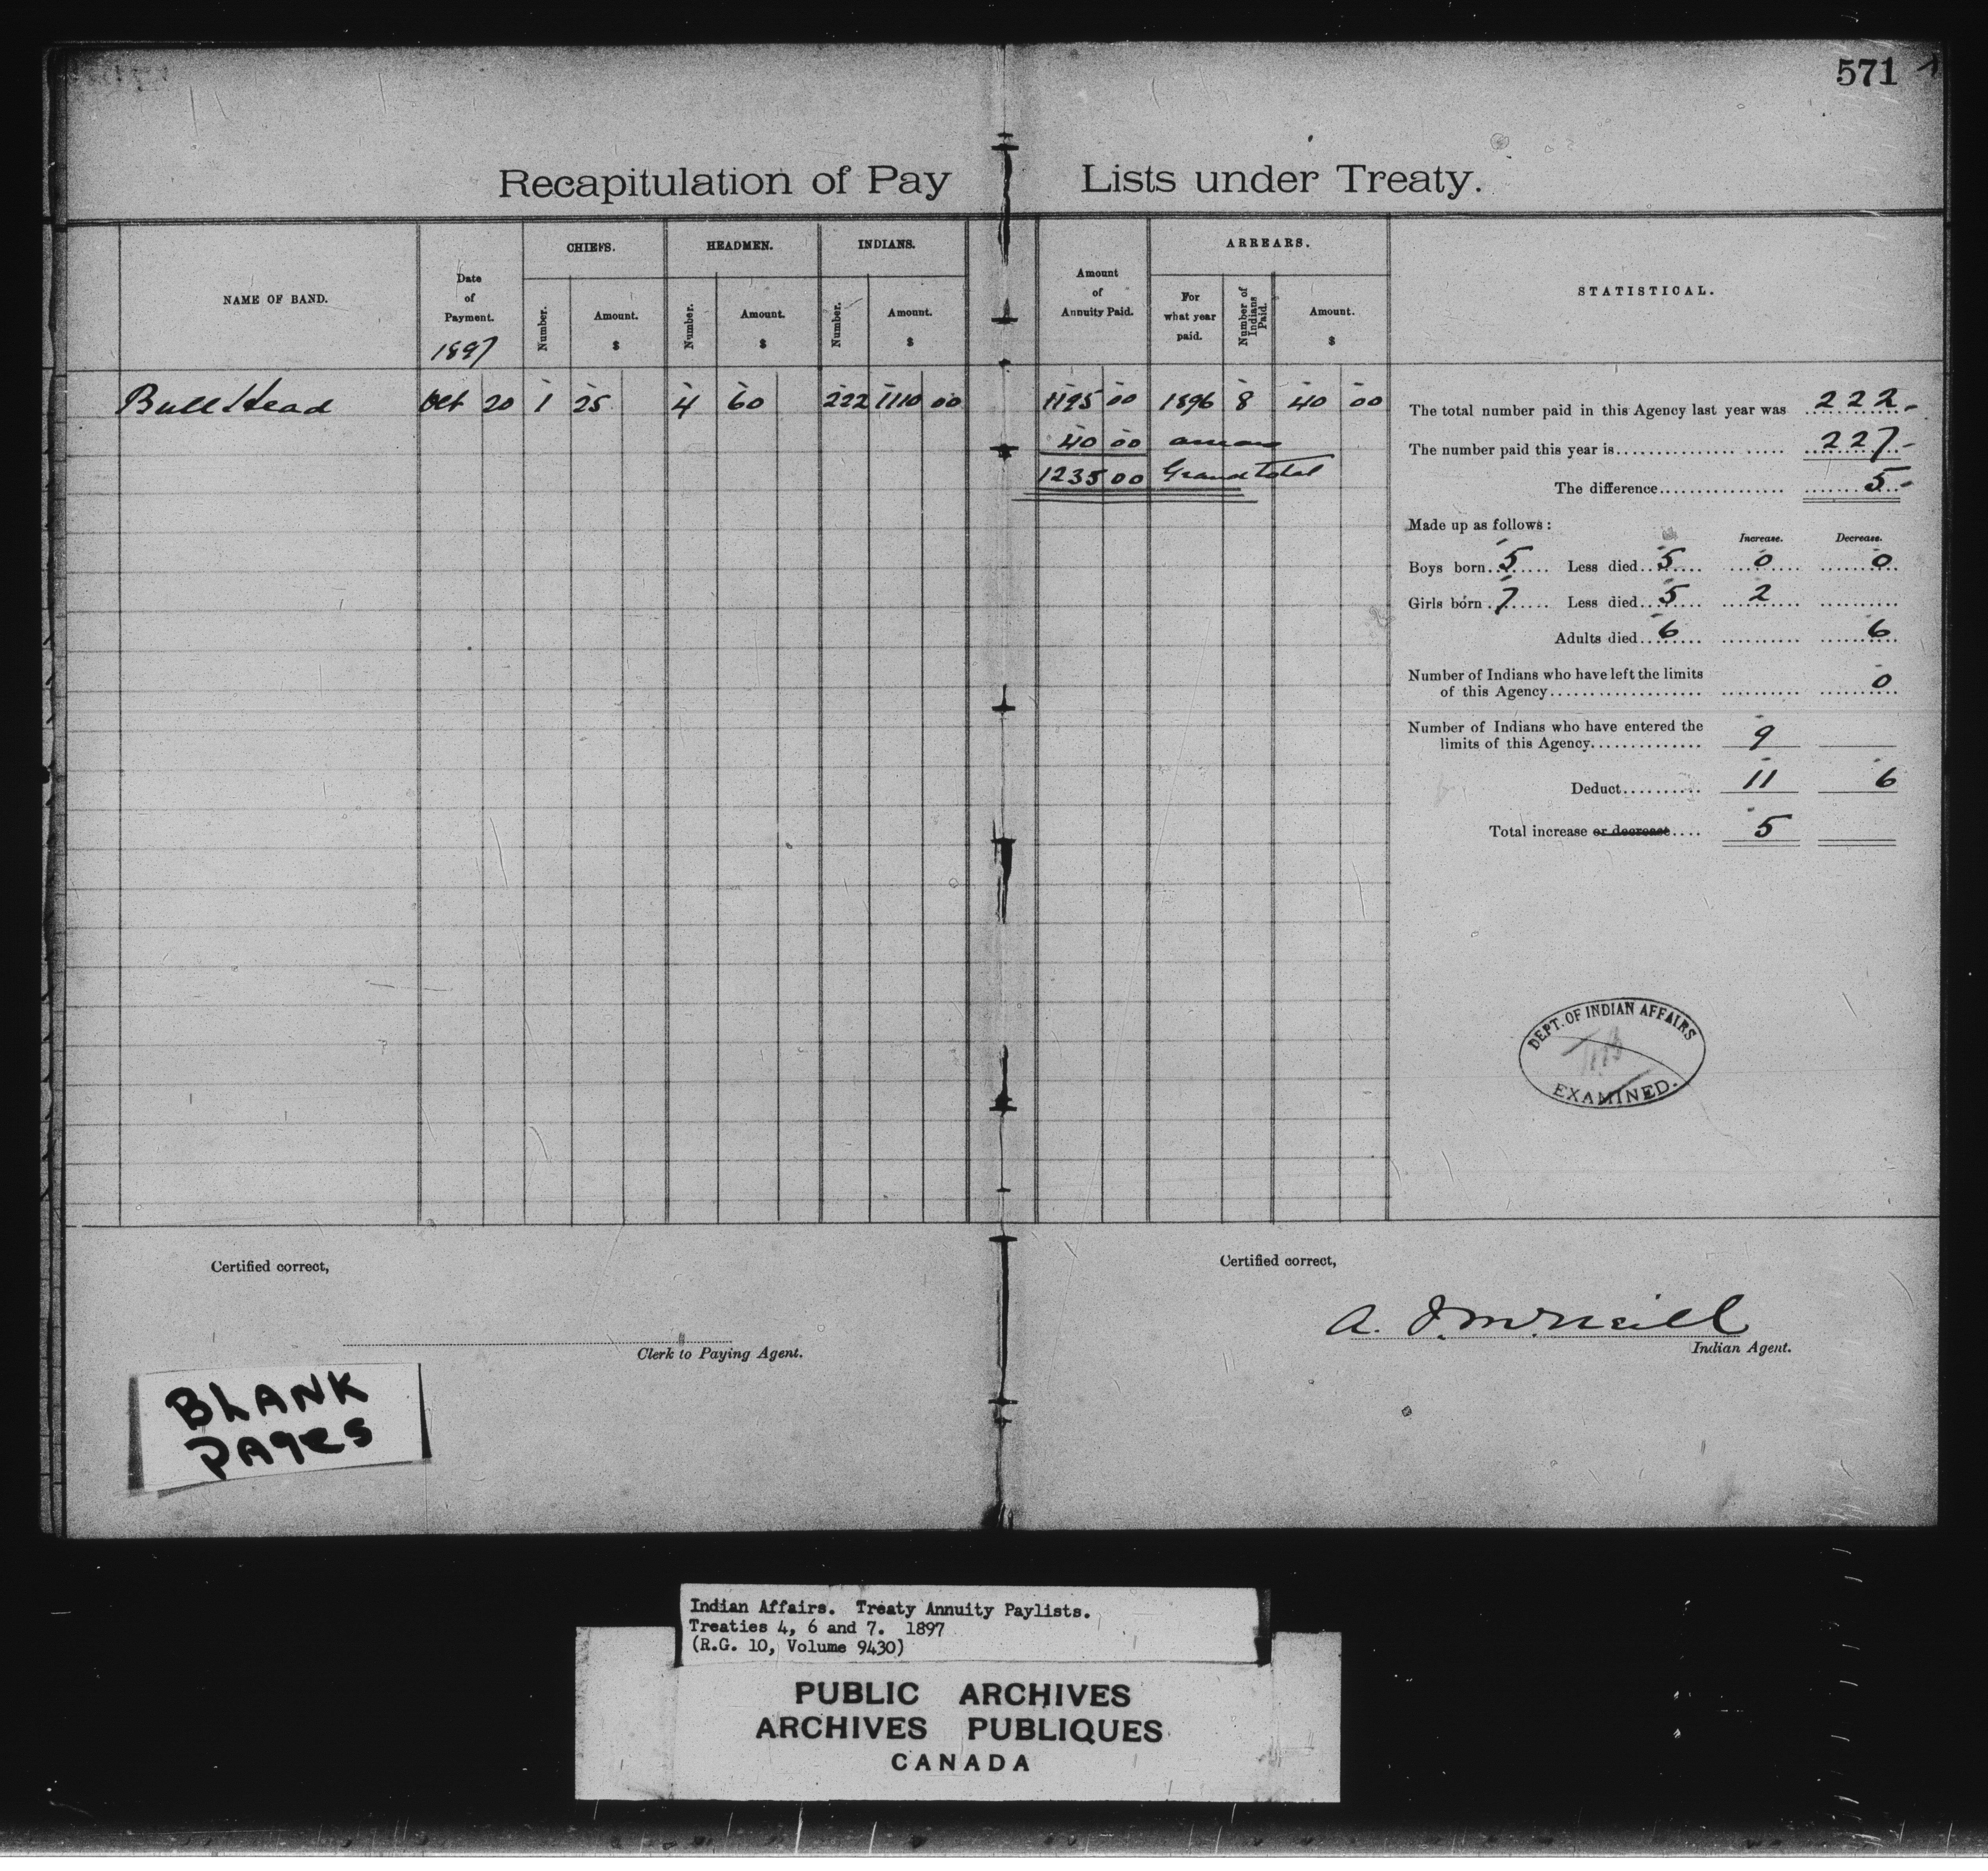 571
Recapitulation of Pay Lists under Treaty.
NAME OF BAND.
Date of Payment. 1897
CHIEFS.
Number.
Amount. $
HEADMEN.
Number.
Amount. $
INDIANS.
Number.
Amount. $
Amount of Annuity Paid.
ARREARS.
For what year paid.
Number of Indians Paid.
Amount. $
STATISTICAL.
Bull Head Oct 20 1 25 4 60 222 1110 00 1195 00 1896 8 40 00
40 00 arrears
1235 00 Grand Total
The total number paid in this Agency last year was 222
The number paid this year is 227
The difference 5
Made up as follows:
Increase. Decrease.
Boys born 5 Less died 5 0 0
Girls born 7 Less died 5 2
Adults died 6 6
Number of Indians who have left the limits
of this Agency 0
Number of Indians who have entered the
limits of this Agency 9
Deduct 11 6
Total increase or decrease 5
DEPT. OF INDIAN AFFAIRS
EXAMINED.
Certified correct,
Clerk to Paying Agent.
Certified correct,
A. J. McNeill
Indian Agent.
BLANK
PAges
Indian Affairs. Treaty Annuity Paylists.
Treaties 4, 6 and 7. 1897
(R.G. 10, Volume 9430)
PUBLIC ARCHIVES
ARCHIVES PUBLIQUES
CANADA